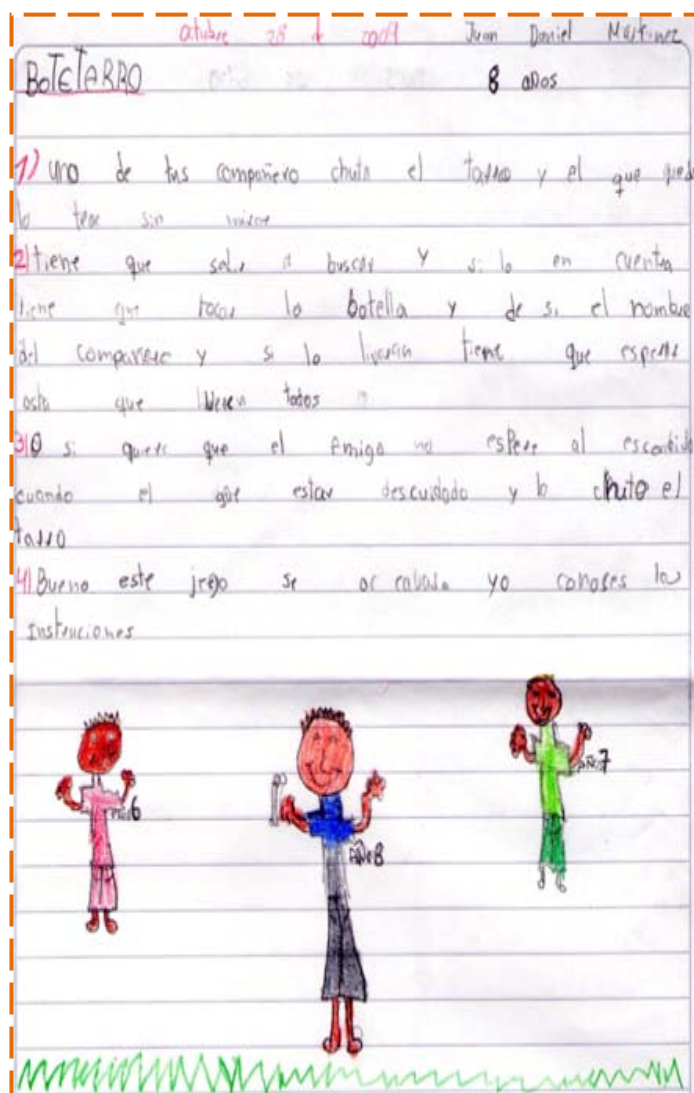 Octubre 28 de 2009 Juan Daniel Martinez
BOTETARRO 8 años
1) uno de tus compañero chuta el tarro y el que qued
lo trae sin mirar
2) tiene que salir a buscar y si lo en cuentra
tiene que tocar la botella y de si el nombre
del compañero y si lo liveran tiene que esperar
asta que liveren todos
3) O si quiere que el Amigo no espere al escondido
cuando el que estar descuidado y lo chuto el
tarro
4) Bueno este juego se ac cabado yo conoses las
Instruciones
Años 6
Años 8
Años 7